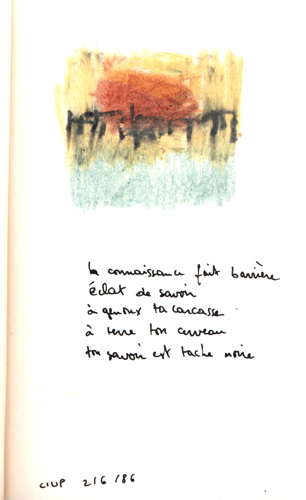 la connaissance fait barrière
éclat de savoir
à genoux ta carcasse
à terre ton cerveau
ton savoir est tache noire
CIUP 2/6/86